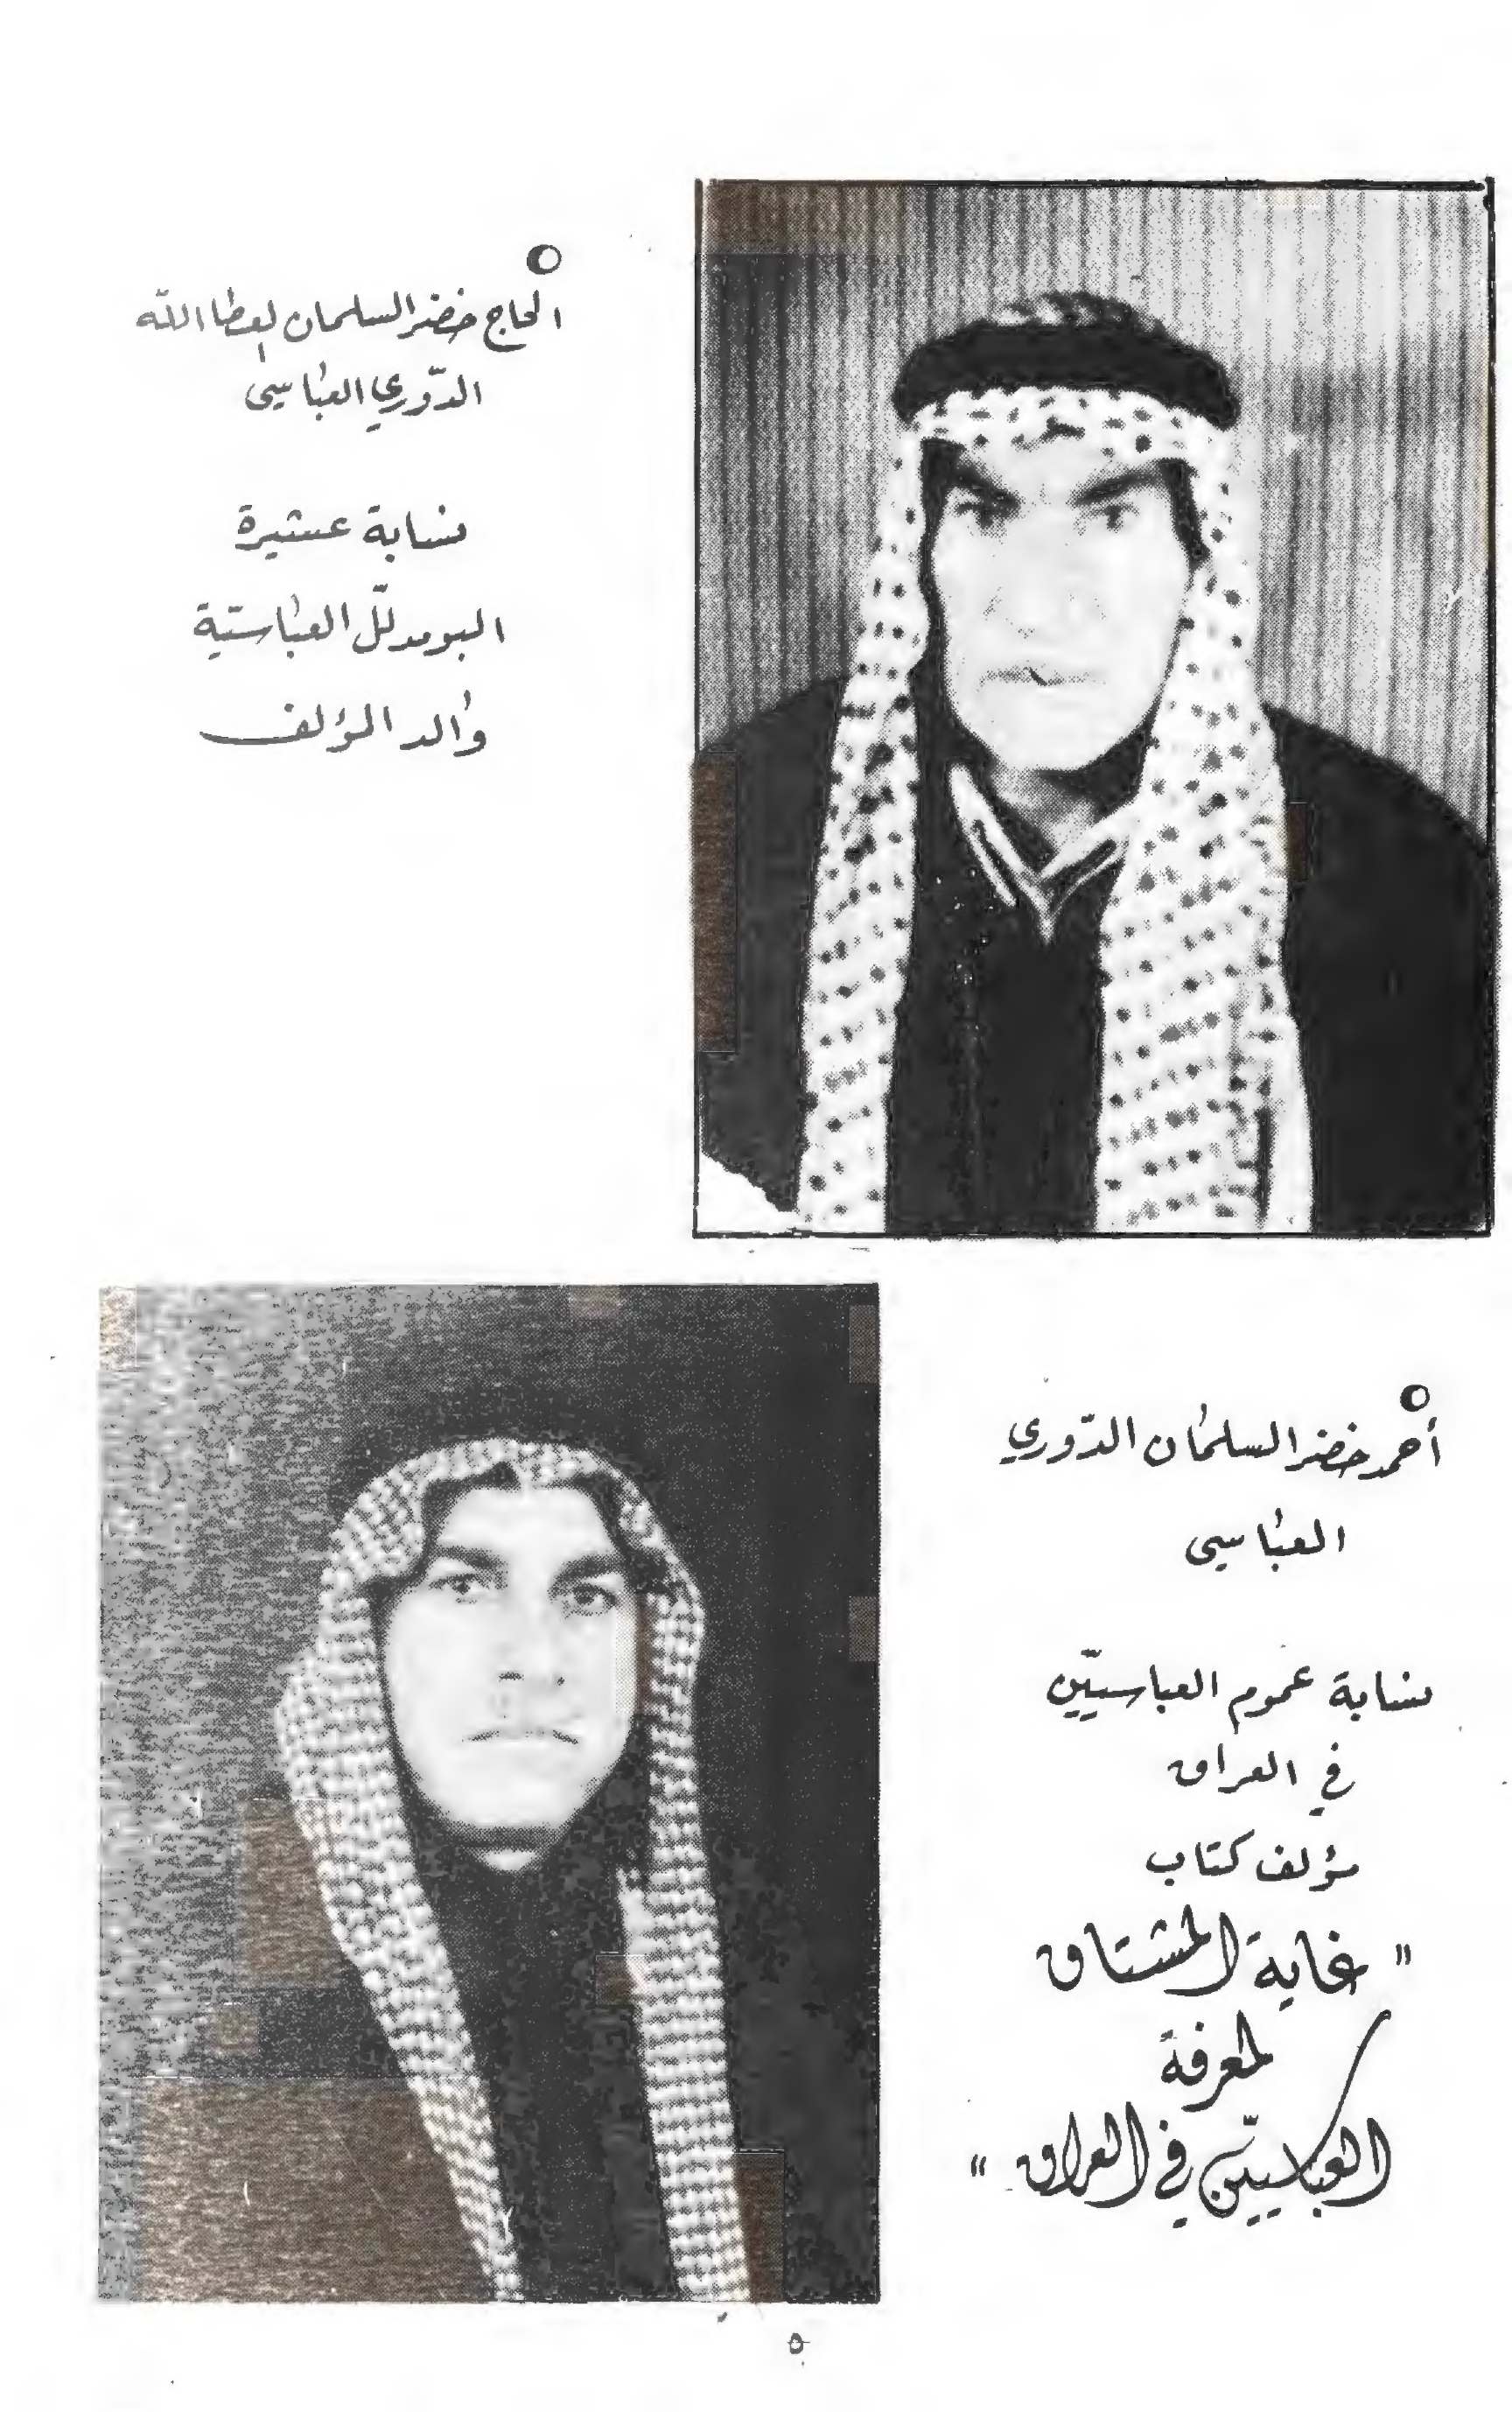 الحاج خضر السلمان العطا الله
الدّوري العباسي
نسابة عشيرة
البو مدلّل العباسيّة
والد المؤلف
أحمد خضر السلمان الدّوري
العباسي
نسابة عموم العباسيّين
في العراق
مؤلف كتاب
" غاية المشتاق
لمعرفة
العباسيّين في العراق "
٥